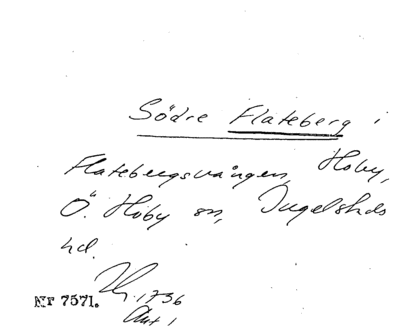 Södre Flateberg i
Flatebergsvången, Hoby,
Ö. Hoby sn, Ingelstads
hd.
1736
Nr 7571.
Akt 1